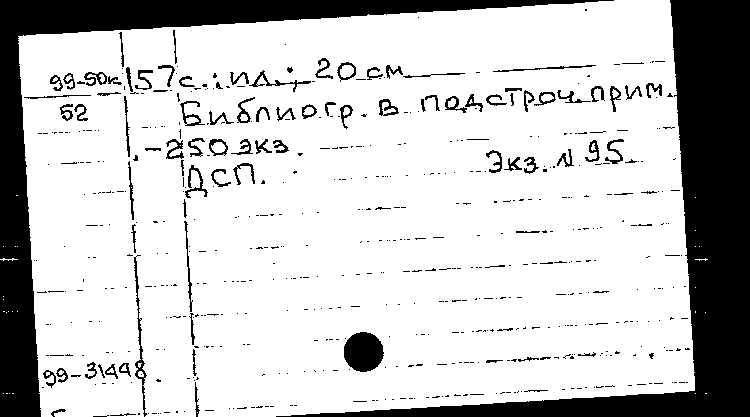 99-50к 157 с. : ил. ; 20 см
52 Библиогр. в подстроч. прим.
. - 250 экз.
ДСП. Экз. N 95
99-31448.